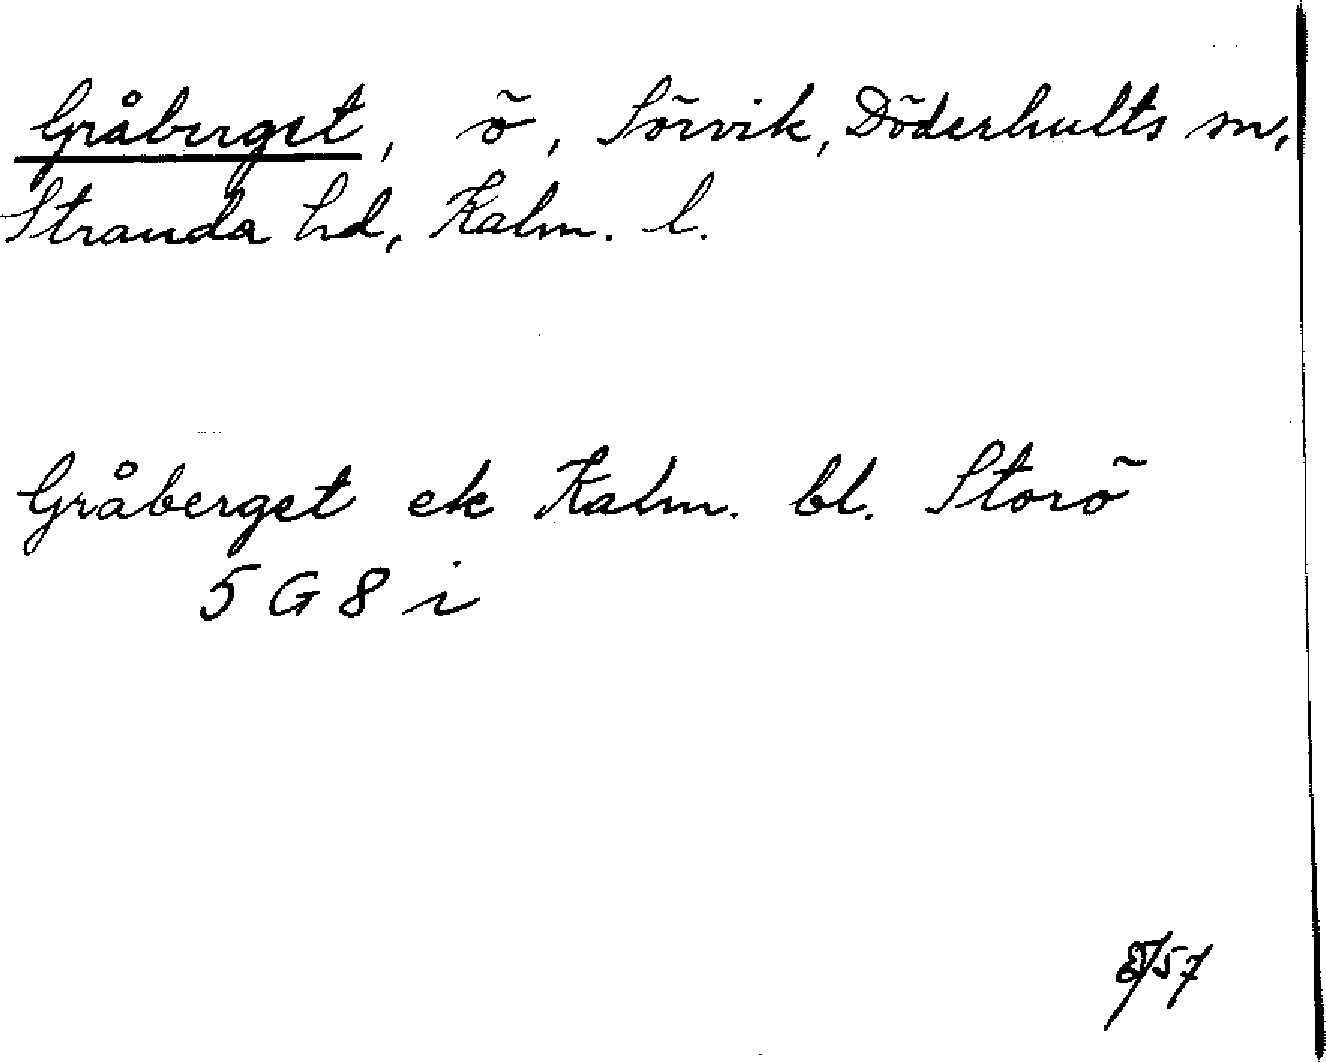 Gråberget, ö, Sörvik, Döderhults sn,
Stranda hd, Kalm. l.
Gråberget ek Kalm. bl. Storö
5 G 8 i
57